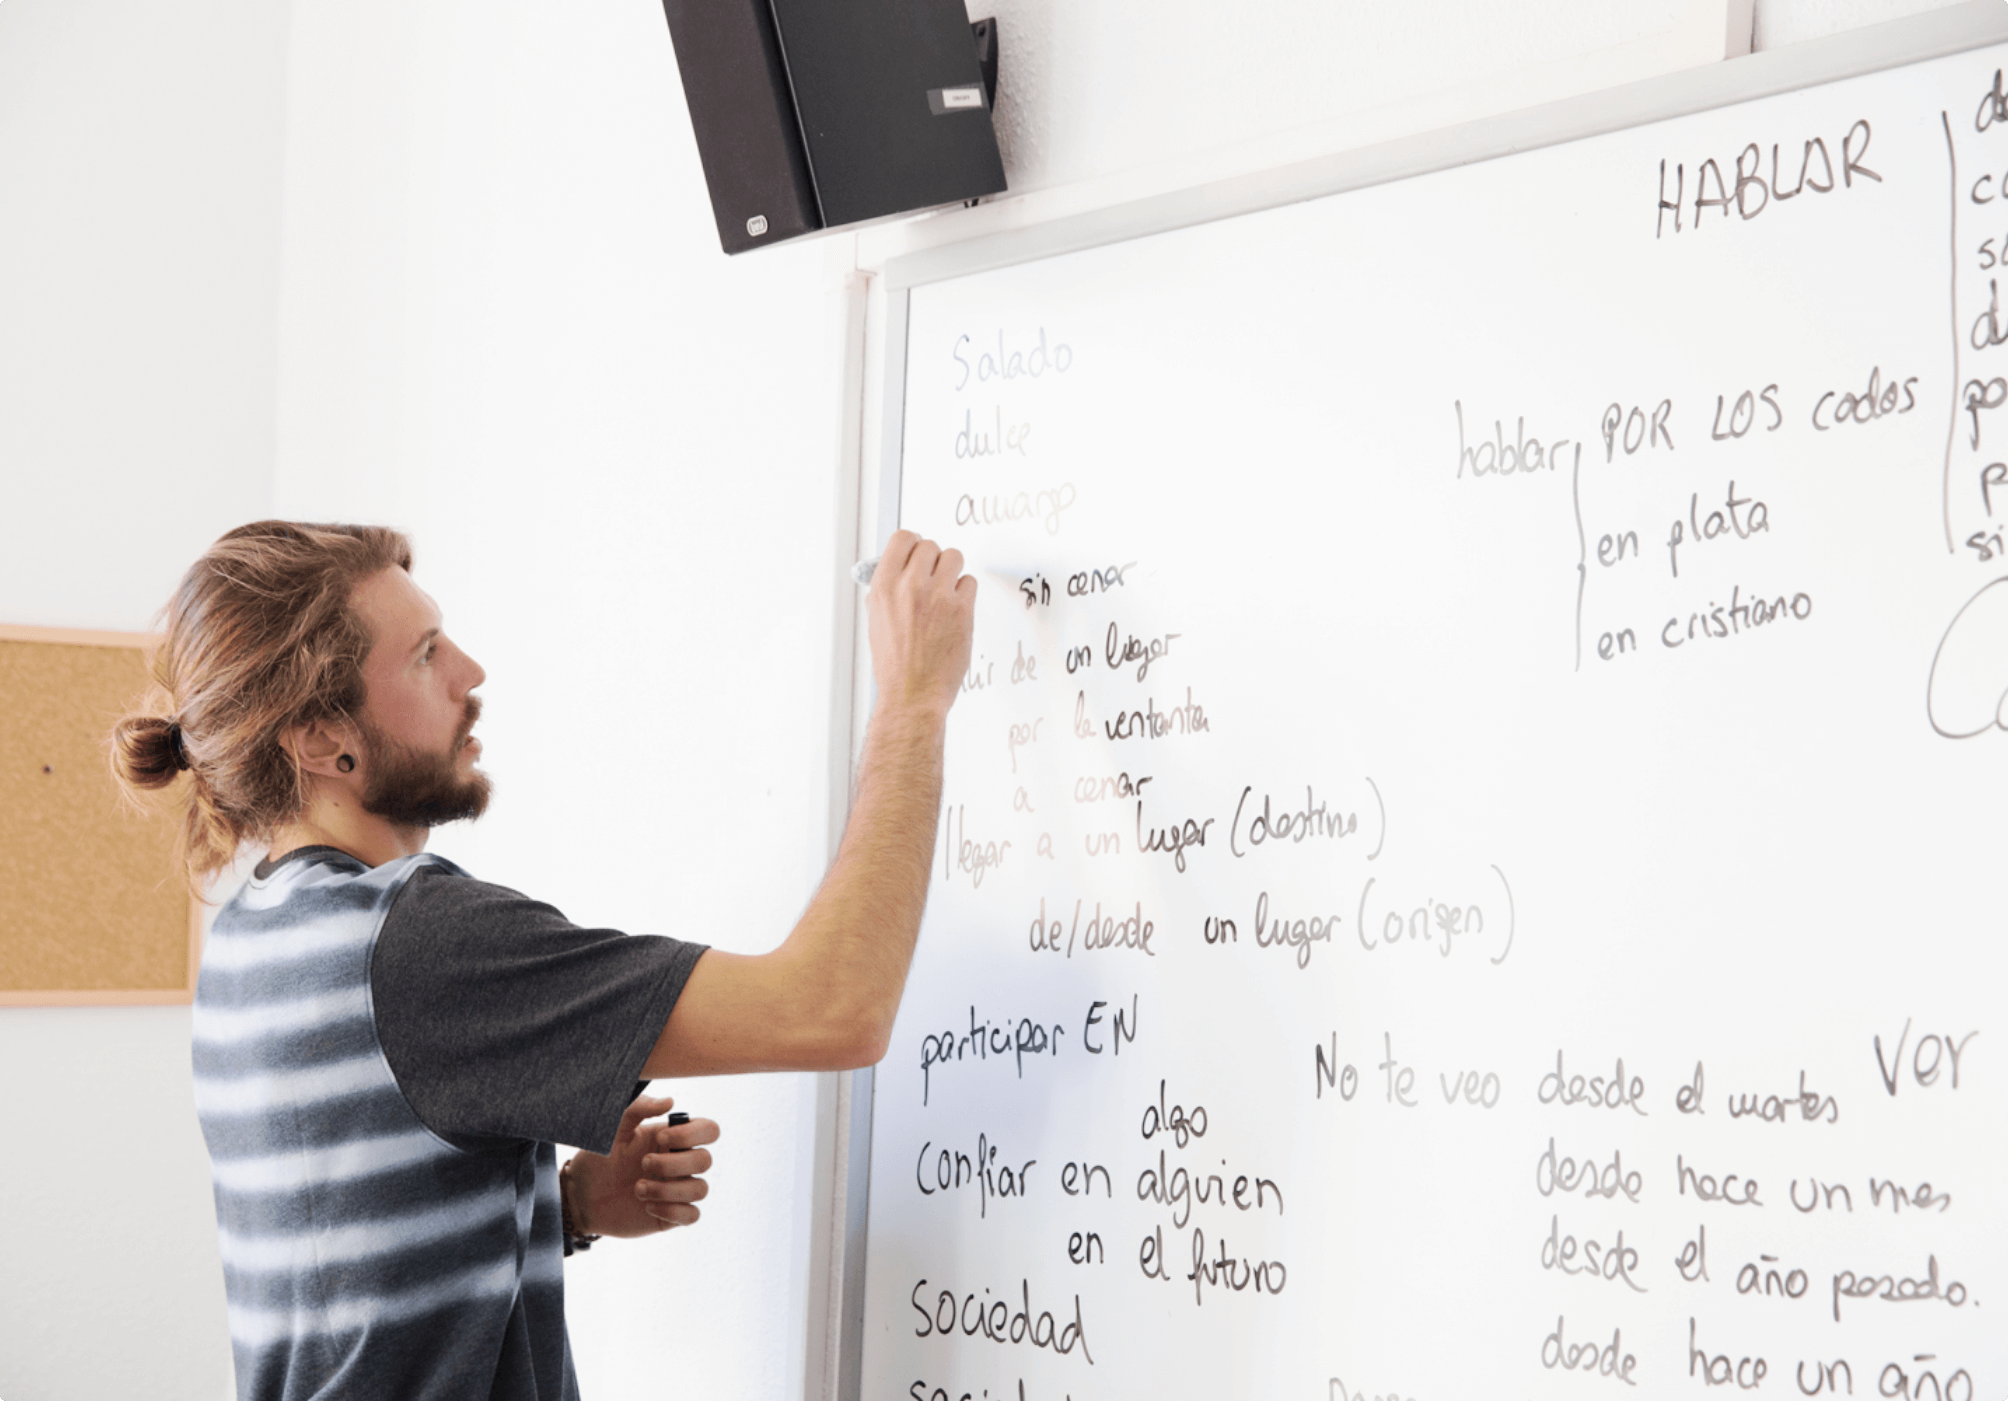 HABLAR
Salado
dulce
amargo
hablar POR LOS codos
en plata
en cristiano
sin cenar
de un lugar
por la ventanta
a cenar
llegar a un lugar (destino)
de/desde un lugar (origen)
participar EN
algo
Confiar en alguien
en el futuro
Sociedad
No te veo desde el martes
Ver
desde hace un mes
desde el año pasado.
desde hace un año